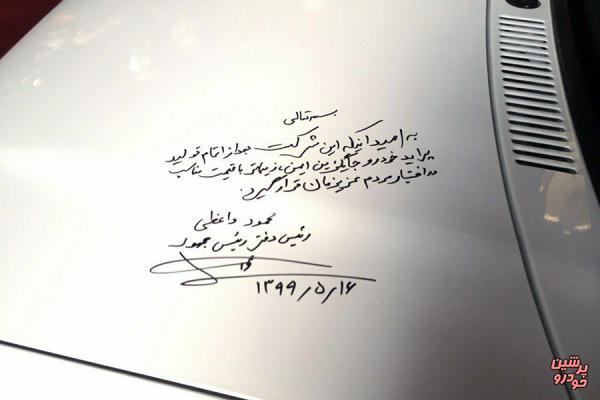 بسمه تعالی
به امید آنکه این شرکت بعد از اتمام تولید
پراید خودرو جایگزین ایمن، زیباتر با قیمت مناسب
در اختیار مردم عزیزمان قرار گیرد.
محمود واعظی
رئیس دفتر رئیس جمهور
۱۳۹۹/۵/۱۶
پرشین
خودرو